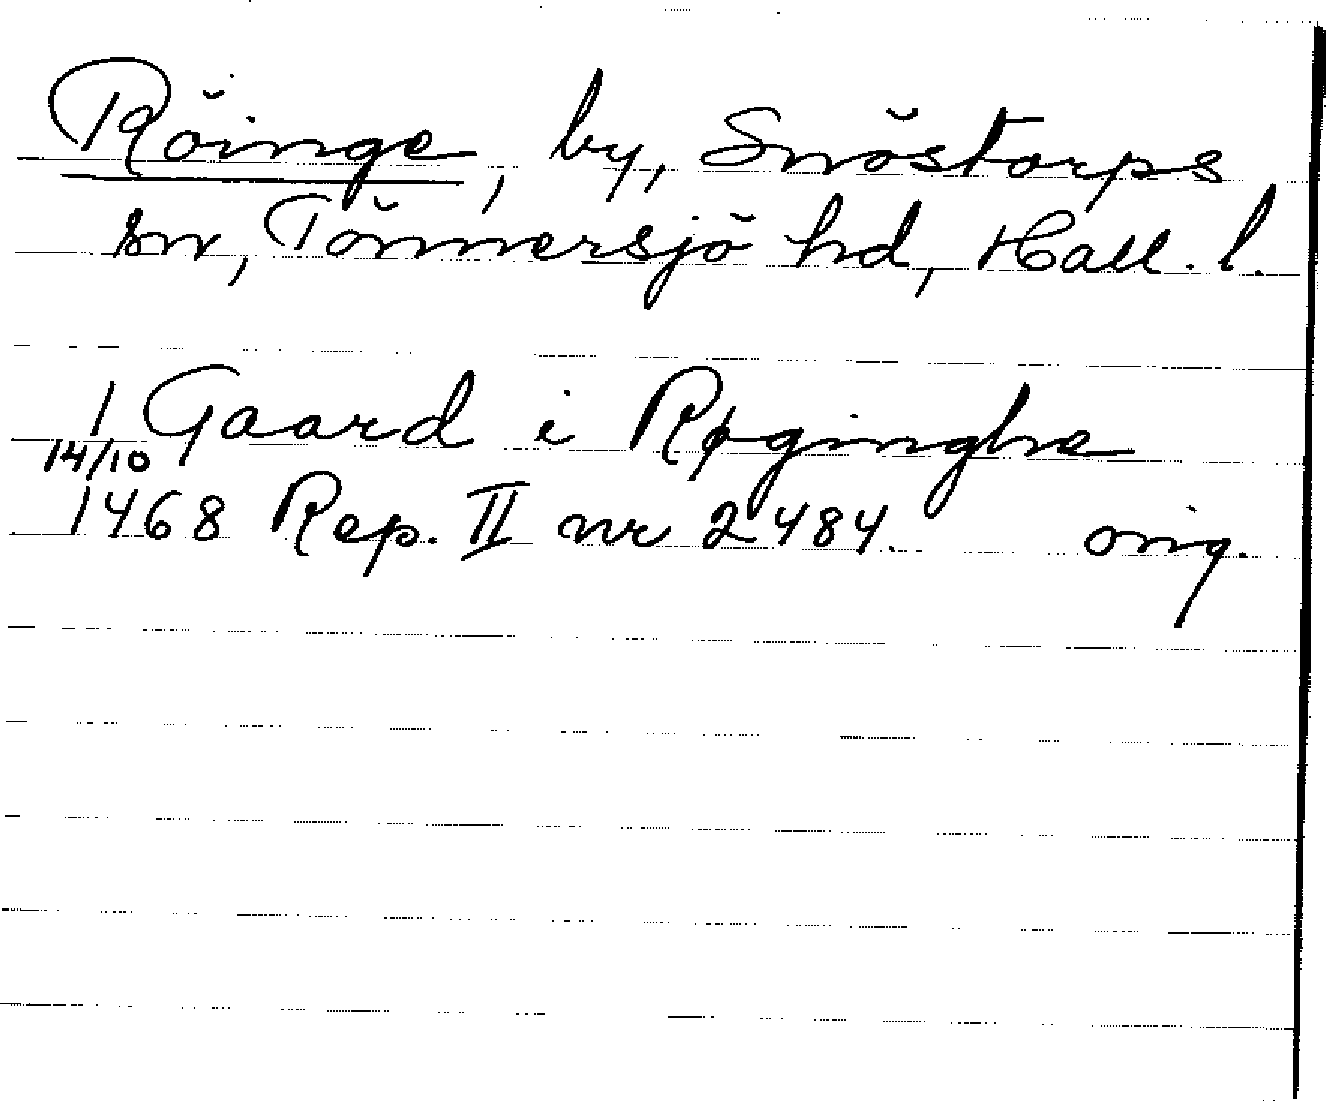 Röinge, by, Snöstorps
sn, Tönnersjö hd, Hall. l.
1 Gaard i Røginghe
14/10
1468 Rep. II nr 2484. orig.